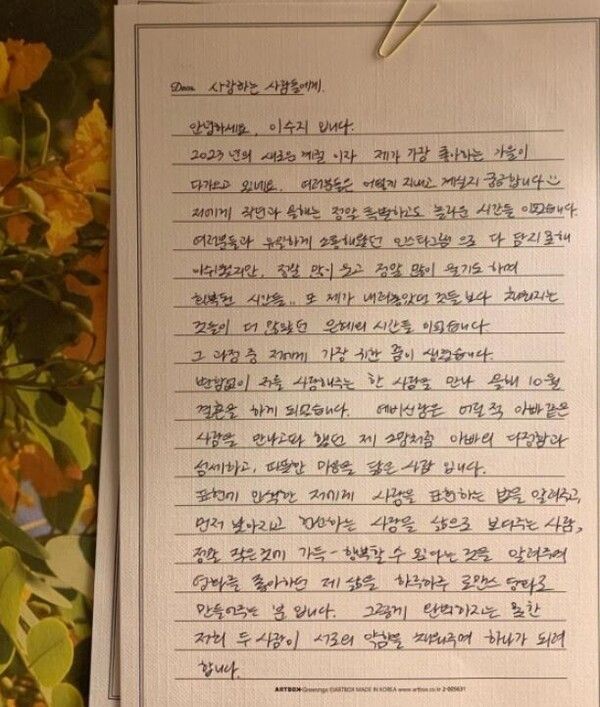 Dear. 사랑하는 사람들에게.
안녕하세요, 이수지 입니다.
2023년의 새로운 계절 이자 제가 가장 좋아하는 가을이
다가오고 있네요. 여러분들은 어떻게 지내고 계실지 궁금합니다
저에게 작년과 올해는 정말 특별하고도 놀라운 시간들 이었습니다.
여러분들과 유일하게 소통해왔던 인스타그램 으로 다 담지못해
아쉬웠지만, 정말 많이 웃고 정말 많이 울기도 하며
회복된 시간들.. 또 제가 내려놓았던 것들보다 채워지는
것들이 더 많았던 은혜의 시간들 이었습니다.
그 과정 중 저에게 가장 귀한 꿈이 생겼습니다.
변함없이 저를 사랑해주는 한 사람을 만나 올해 10월
결혼을 하게 되었습니다. 예비신랑은 어릴 적 아빠같은
사람을 만나고파 했던 제 소망처럼 아빠의 다정함과
섬세하고, 따뜻한 마음을 닮은 사람 입니다.
표현에 인색한 저에게 사랑을 표현하는 법을 알려주고,
먼저 낮아지고 헌신하는 사랑을 삶으로 보여주는 사람,
정말 작은것에 가득 행복할 수 있다는 것을 알려주며
영화를 좋아하던 제 삶을 하루하루 로맨스 영화로
만들어주는 분 입니다. 그렇게 완벽하지는 못한
저희 두 사람이 서로의 약함을 채워주며 하나가 되려
합니다.
ARTBOX Greetings ©ARTBOX MADE IN KOREA www.artbox.co.kr 2-005631